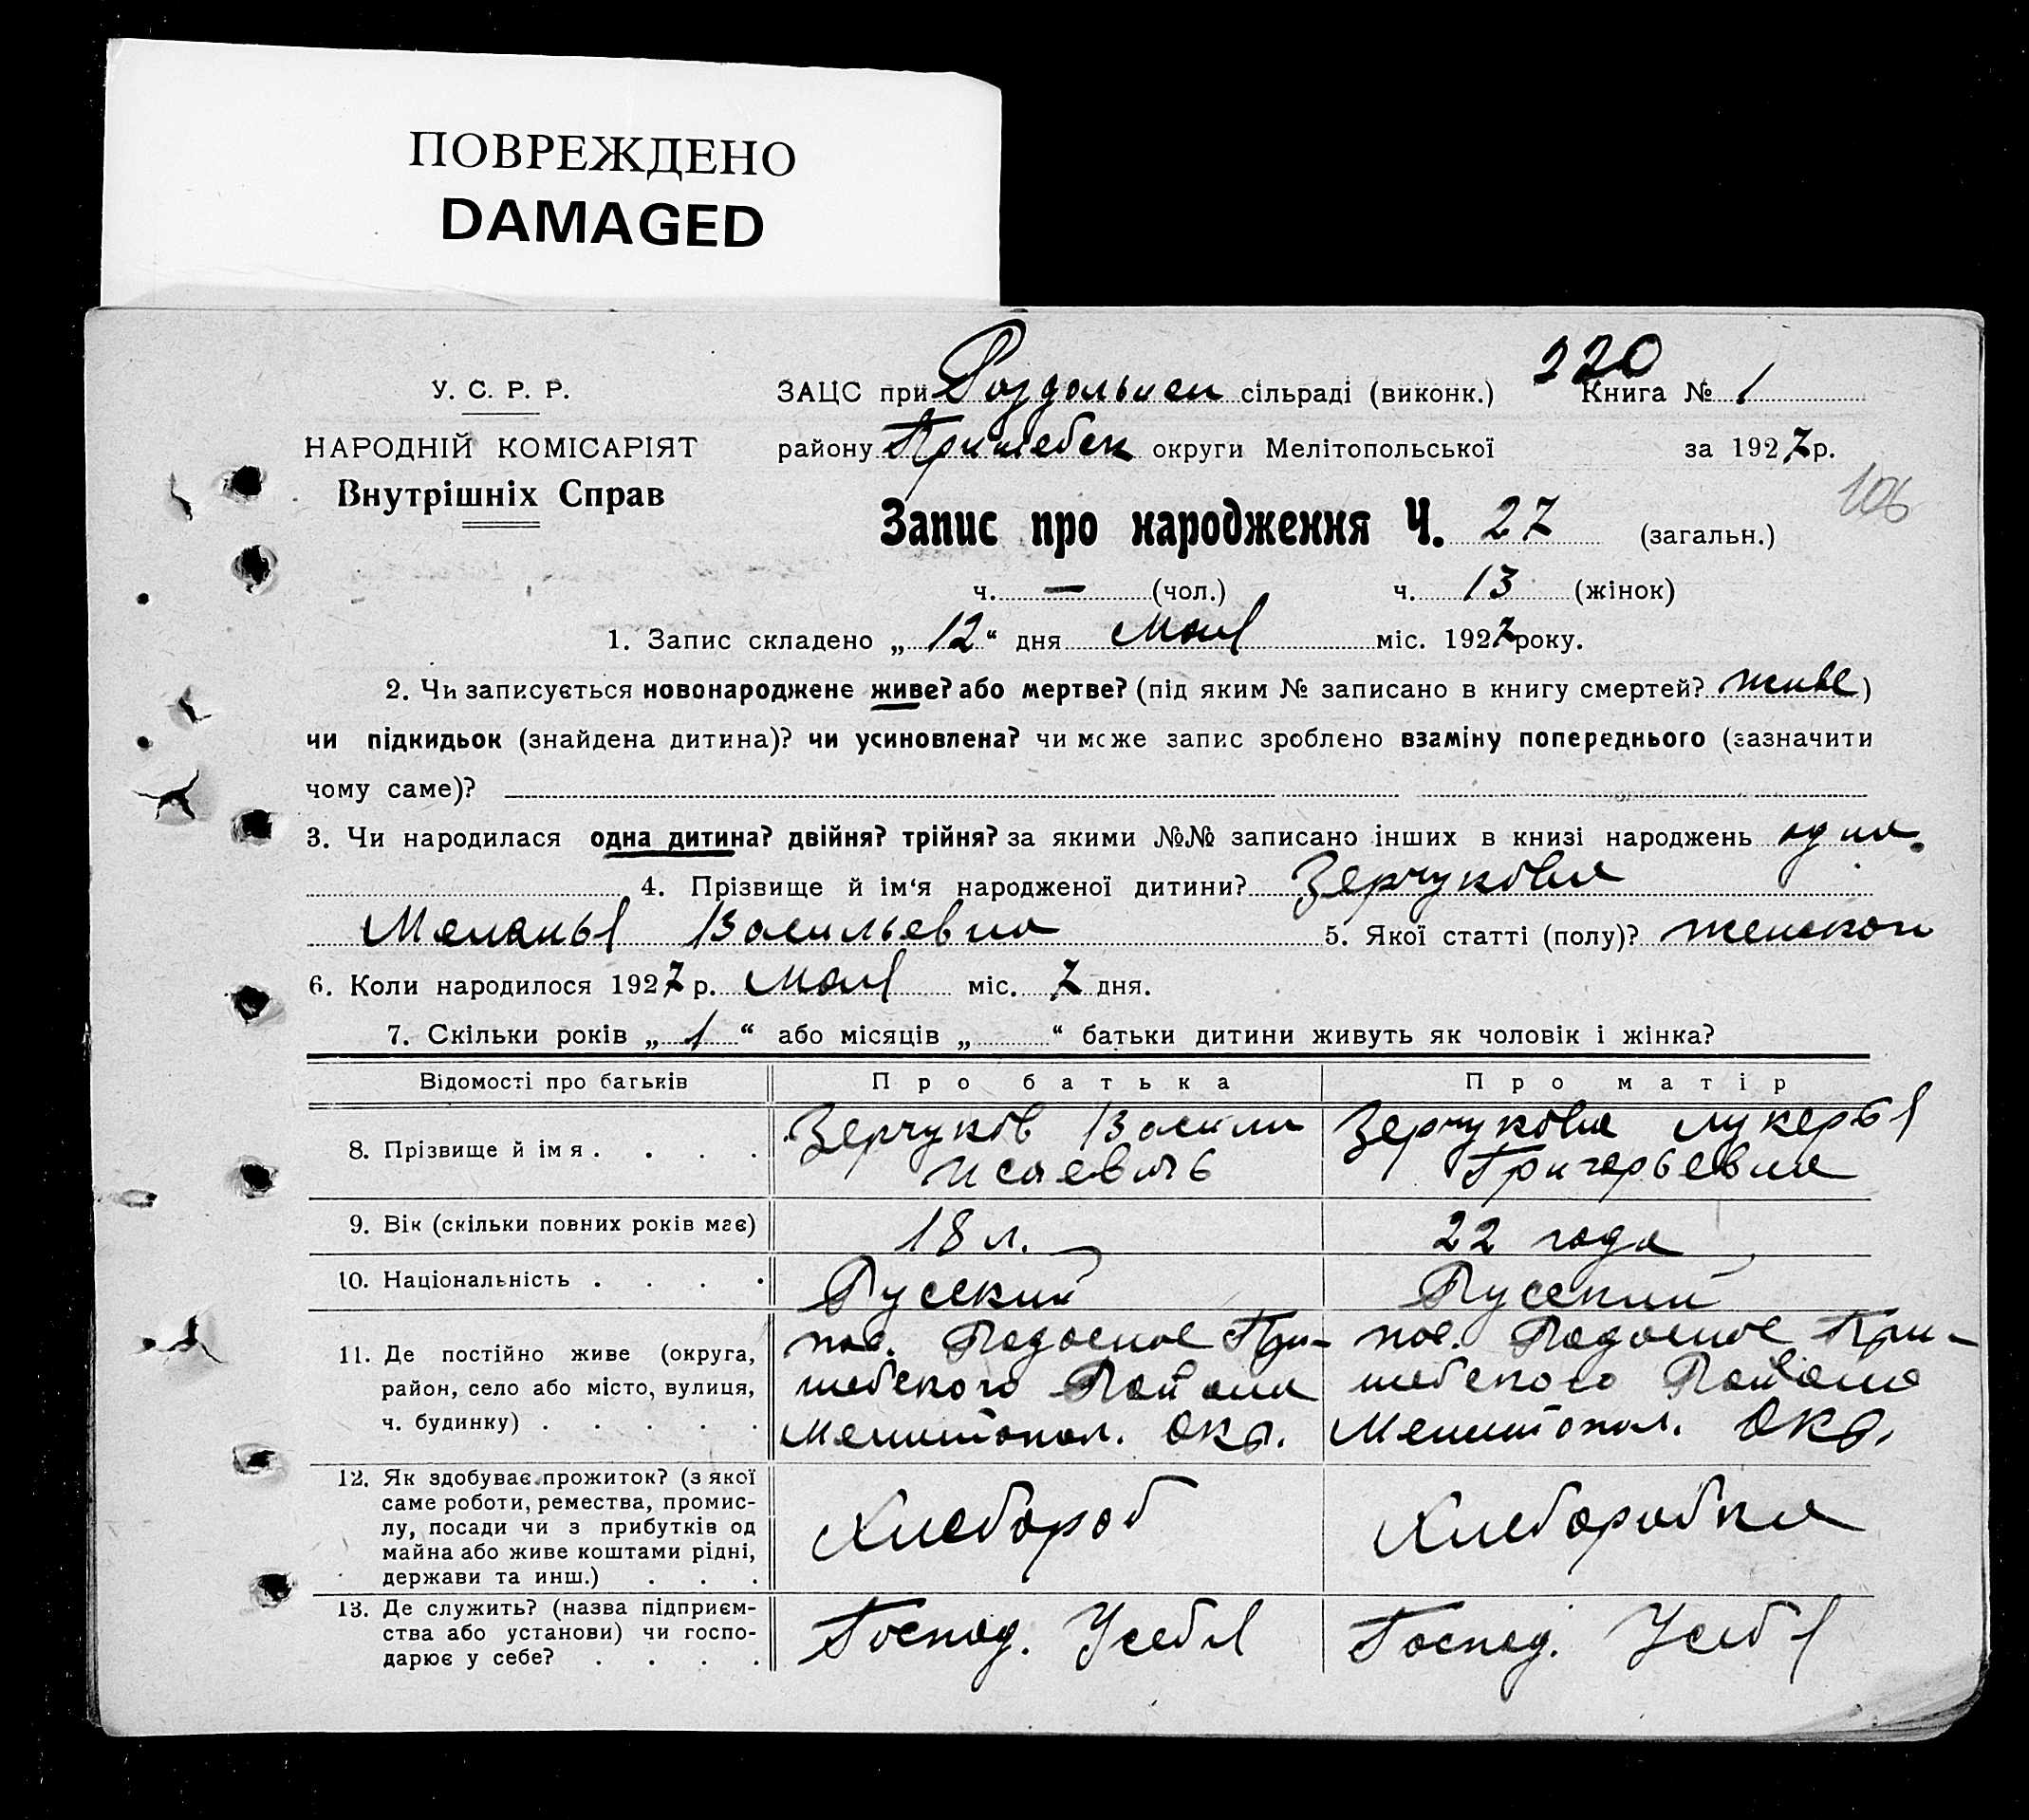 ПОВРЕЖДЕНО
DAMAGED
220
У. С. Р. Р.
ЗАЦС при Роздольнен сільраді (виконк.) Книга № 1
НАРОДНІЙ КОМІСАРІЯТ
району Пришебск округи Мелітопольської за 1927 р.
Внутрішніх Справ
106
Запис про народження Ч. 27 (загальн.)
ч. — (чол.) ч. 13 (жінок)
1. Запис складено „ 12 “ дня мая міс. 1927 року.
2. Чи записується новонароджене живе? або мертве? (під яким № записано в книгу смертей? живе )
чи підкидьок (знайдена дитина)? чи усиновлена? чи може запис зроблено взаміну попереднього (зазначити
чому саме)?
3. Чи народилася одна дитина? двійня? трійня? за якими №№ записано інших в книзі народжень одна.
4. Прізвище й ім‘я народженої дитини? Зерчукова
Меланья Васильевна 5. Якої статті (полу)? женской
6. Коли народилося 1927 р. мая міс. 7 дня.
7. Скільки років „ 1 “ або місяців „ “ батьки дитини живуть як чоловік і жінка?
Відомості про батьків Про батька Про матір
8. Прізвище й імя . . . . Зерчуков Васили Зерчукова Лукерья
Исаевичь Григорьевна
9. Вік (скільки повних років має) 18 л. 22 года
10. Національність . . . . Русский Русский
пос. Подосное При- пос. Подосное При-
11. Де постійно живе (округа,
район, село або місто, вулиця, шебского Района шебского Района
ч. будинку) . . . . . Мелитопол. Окр. Мелитопол. Окр.
12. Як здобуває прожиток? (з якої
саме роботи, ремества, промис-
лу, посади чи з прибутків од Хлебороб Хлеборобка
майна або живе коштами рідні,
держави та инш.) . . .
13. Де служить? (назва підприєм-
ства або установи) чи госпо- Господ. Усебя Господ. Усебя
дарює у себе? . . . .